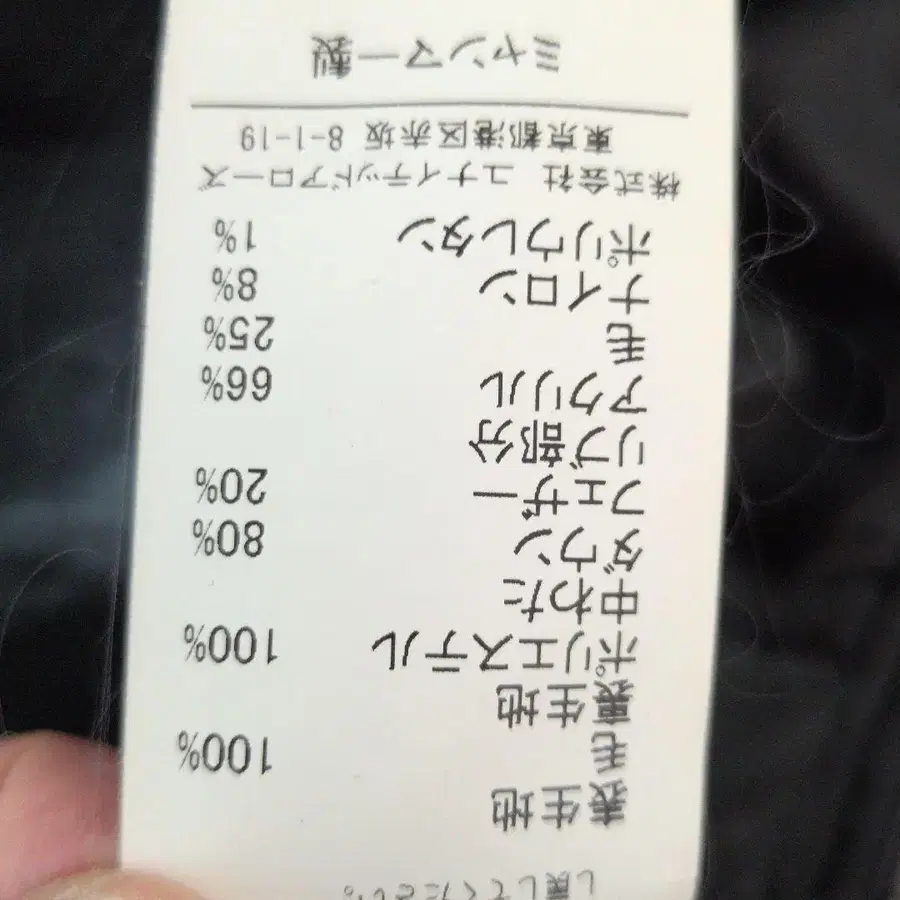 し戻してください。
表生地
毛 100%
裏生地
ポリエステル 100%
中わた
ダウン 80%
フェザー 20%
リブ部分
アクリル 66%
毛 25%
ナイロン 8%
ポリウレタン 1%
株式会社 ユナイテッドアローズ
東京都港区赤坂 8-1-19
ミャンマー製